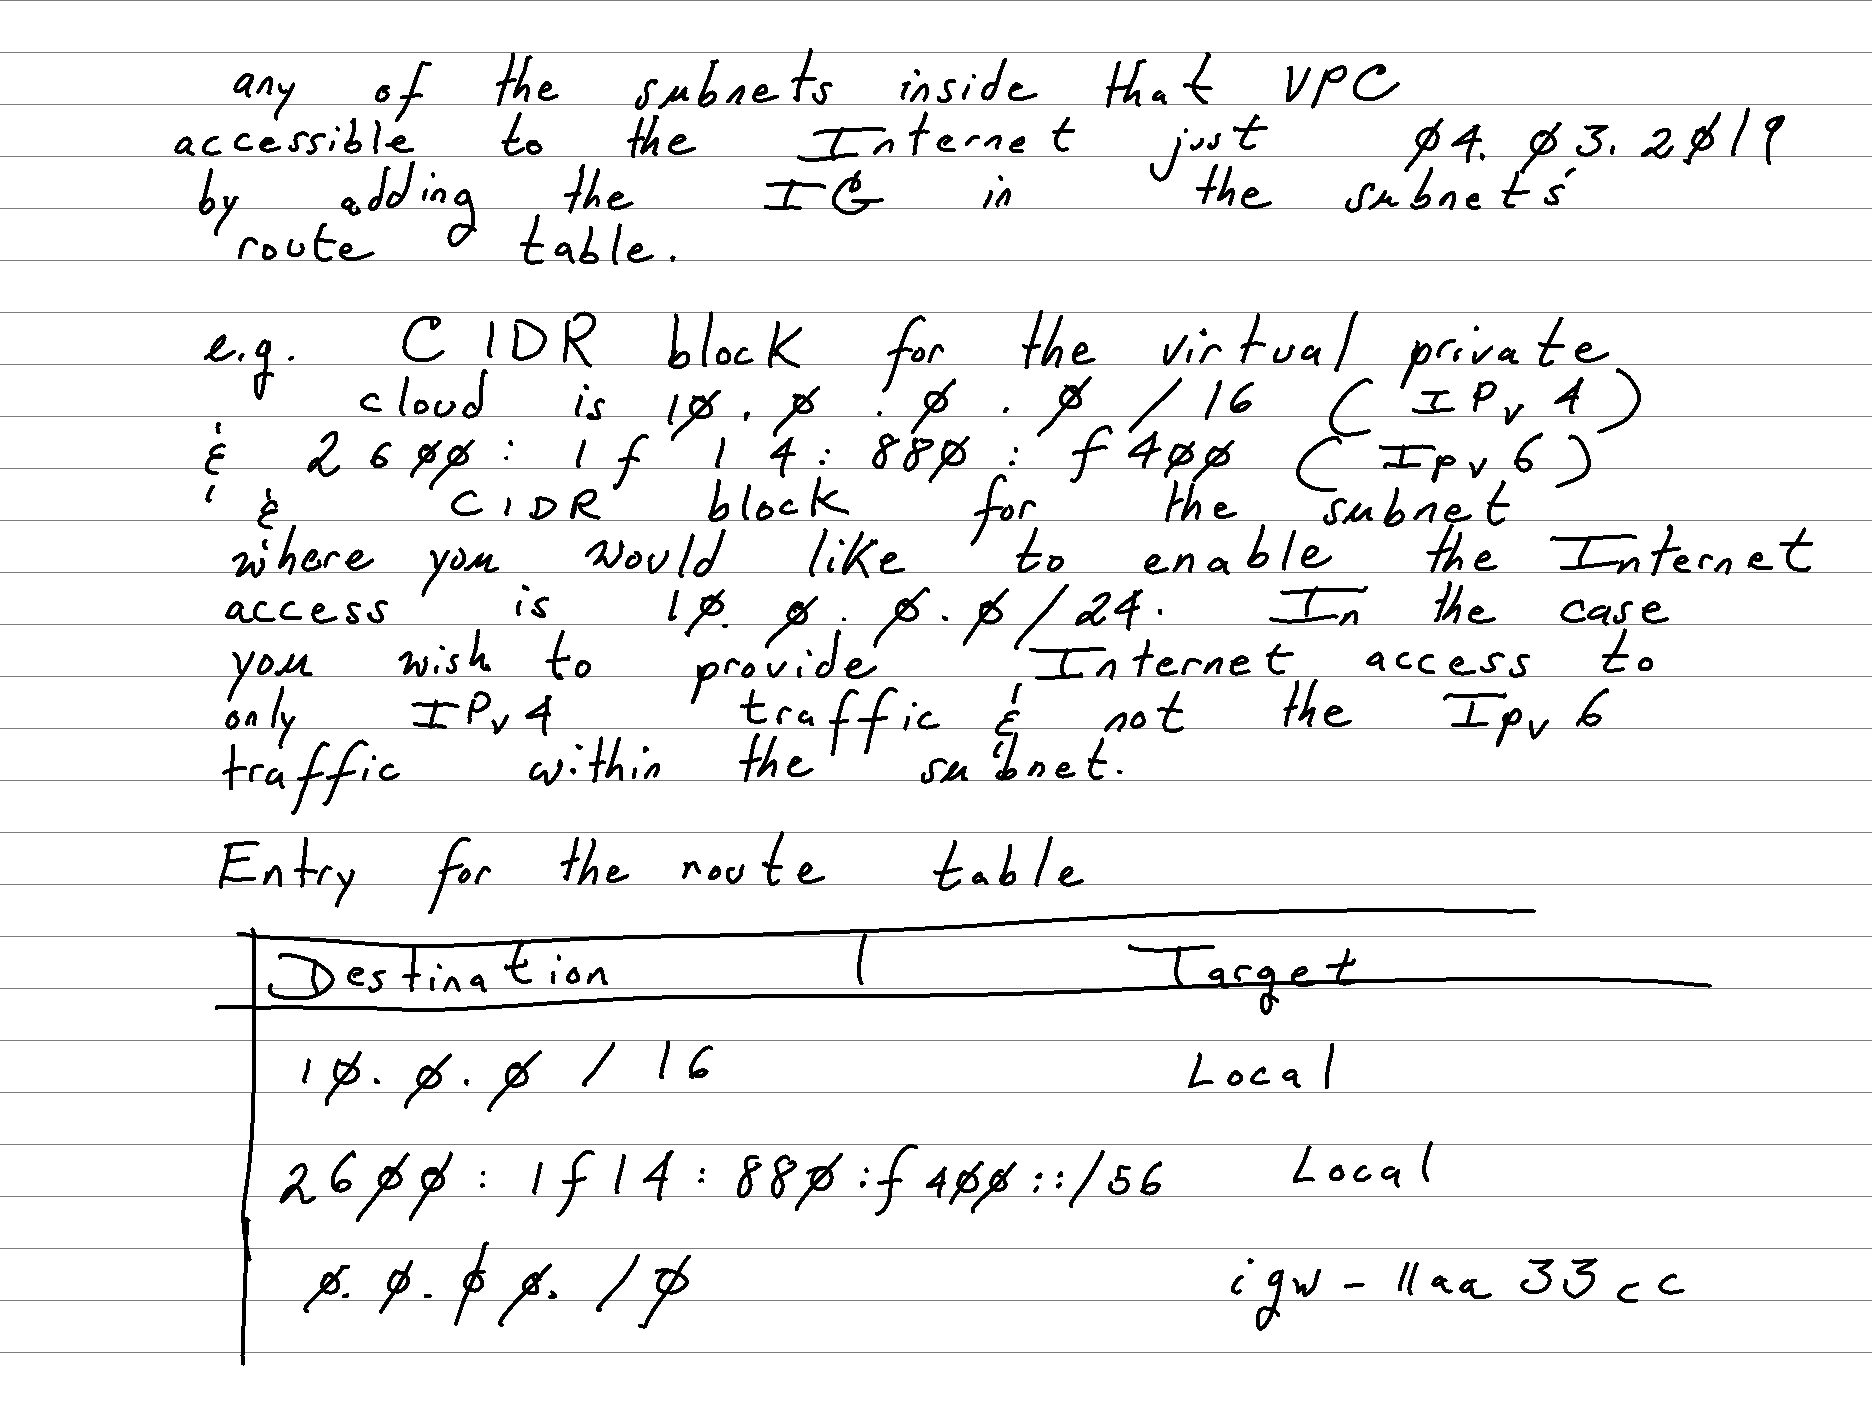 any of the subnets inside that VPC
accessible to the Internet just 04.03.2019
by adding the IG in the subnet's
route table.
e.g. CIDR block for the virtual private
cloud is 10.0.0.0/16 (IPv4)
& 2600:1f14:880:f400 (Ipv6)
& CIDR block for the subnet
where you would like to enable the Internet
access is 10.0.0.0/24. In the case
you wish to provide Internet access to
only IPv4 traffic & not the Ipv6
traffic within the subnet.
Entry for the route table
Destination | Target
10.0.0/16 Local
2600:1f14:880:f400::/56 Local
0.0.0 0./0 igw-11aa33cc